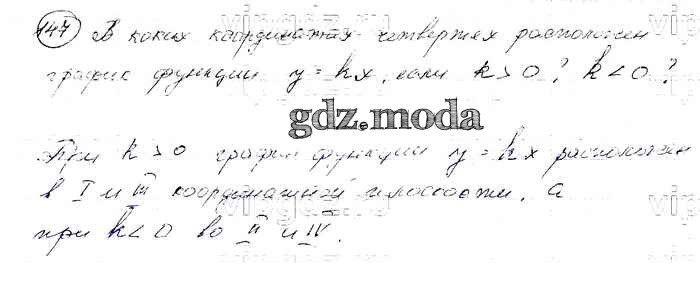 147 В каких координатах четвертях расположен
график функции y = kx, если k > 0? k < 0?
gdz.moda
При k > 0 график функции y = kx расположен
в I и III координатной плоскости, а
при k < 0 во II и IV.